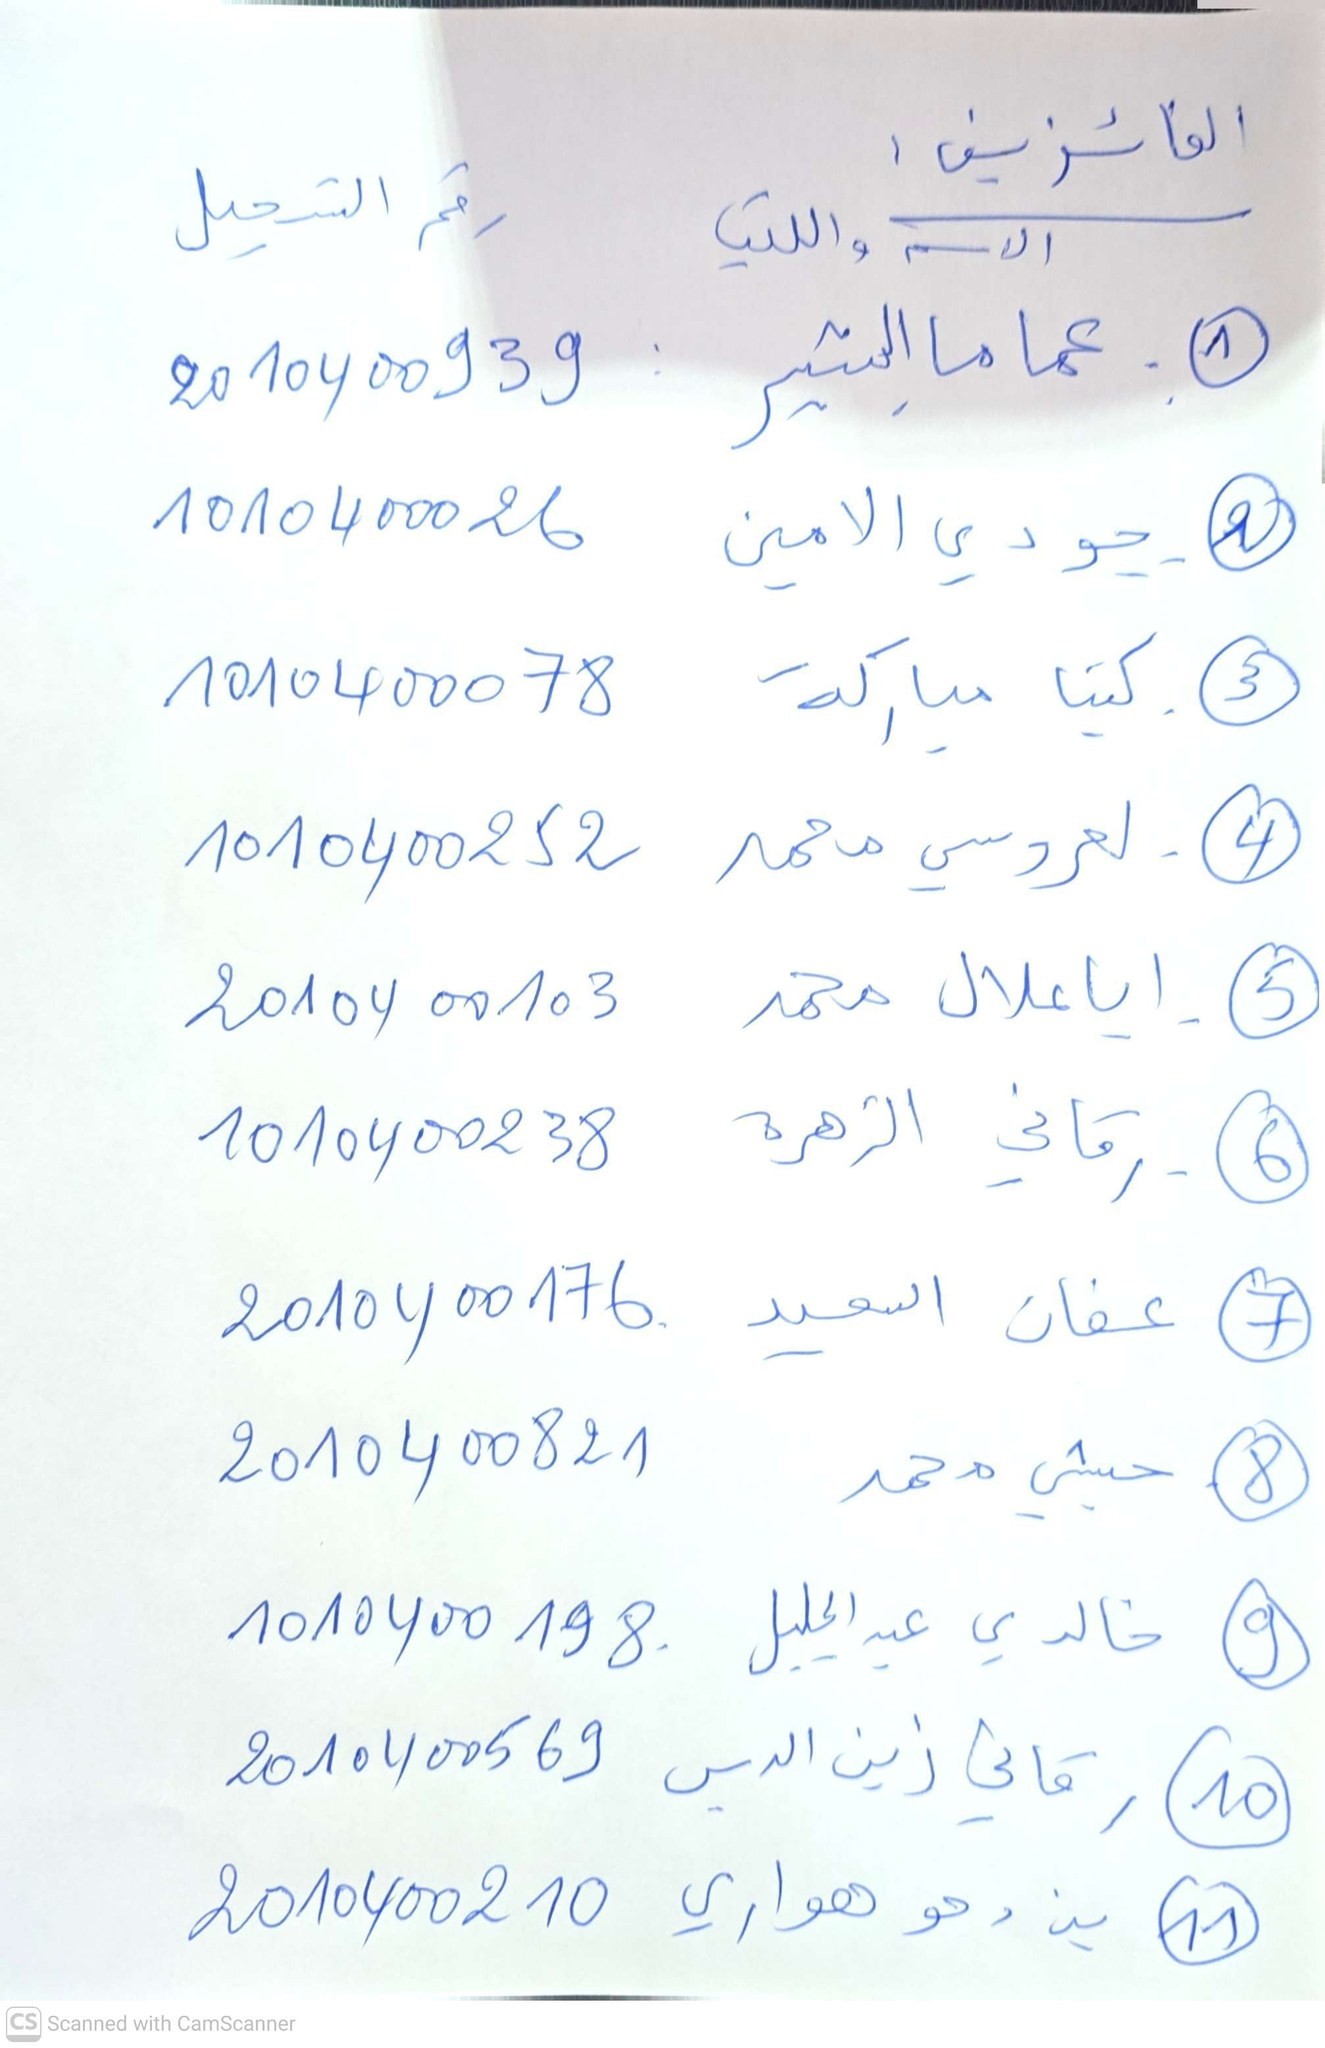 الفائزين :
الاسم واللقب رقم التسجيل
1 - عماما البشير : 2010400939
2 - جودي الامين 1010400026
3 - كينا مباركة 1010400078
4 - لعروسي محمد 1010400252
5 - ايا علال محمد 2010400103
6 - رقاني الزهرة 1010400238
7 عفان السعيد 2010400176.
8 حبشي محمد 2010400821
9 خالدي عبد الجليل 1010400198.
10 رقاني زين الدين 2010400569
11 بن دحو هواري 2010400210
CS Scanned with CamScanner